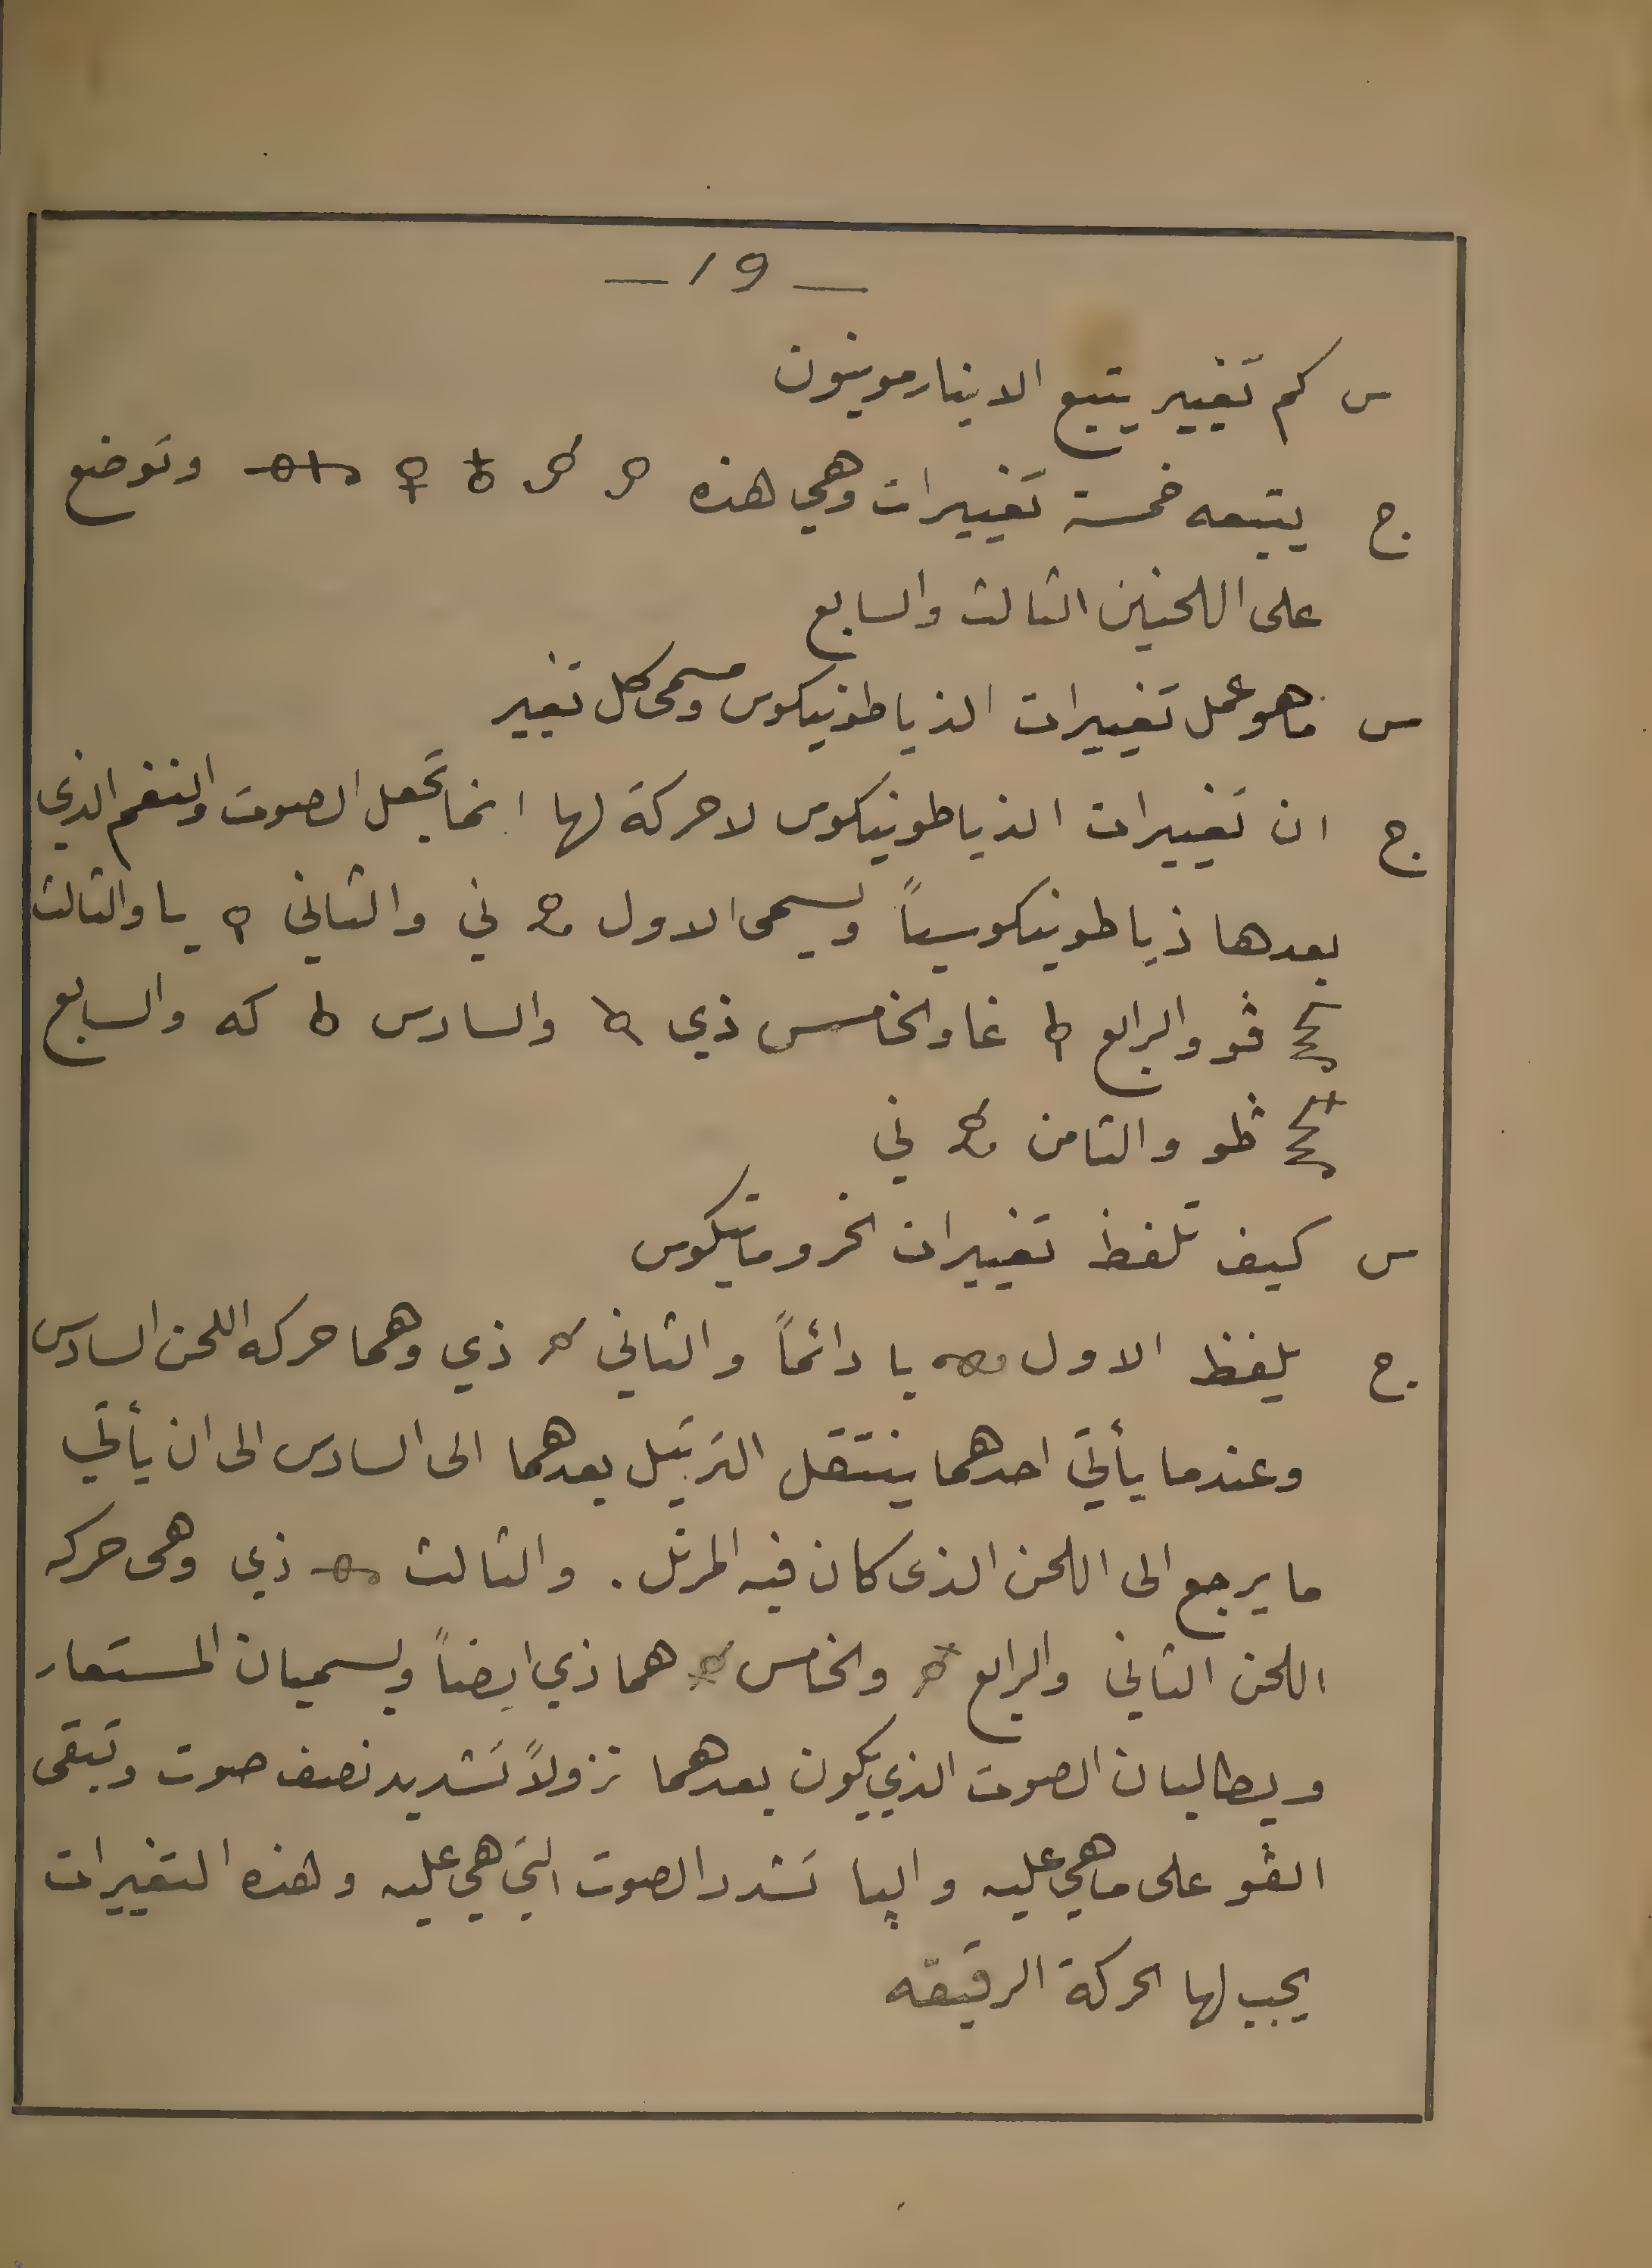 — 19 —
س كم تغيير يتبع الاينارمونيون
ج يتبعه خمسة تغييرات وهي هذه وتوضع
على اللحنين الثالث والسابع
س ما هو عمل تغييرات الذياطونيكوس ومسمى كل تغيير
ج ان تغييرات الذياطونيكوس لا حركة لها انما تجعل الصوت والنغم الذي
بعدها ذياطونيكوسياً ويسمى الاول ني والثاني يا والثالث
ڤو والرابع غا والخامس ذي والسادس كه والسابع
ظو والثامن ني
س كيف تلفظ تغييرات الخروماتيكوس
ج يلفظ الاول يا دائماً والثاني ذي وهما حركه اللحن السادس
وعندما يأتي احدهما ينتقل الترتيل بعدهما الى السادس الى ان يأتي
ما يرجع الى اللحن الذى كان فيه المرتل . والثالث ذي وهى حركه
اللحن الثاني والرابع والخامس هما ذي ايضاً ويسميان المستعار
ويطالبان الصوت الذي يكون بعدهما نزولاً تشديد نصف صوت وتبقى
الڤو على ما هي عليه والپا تشدد الصوت التي هي عليه وهذه التغييرات
يجب لها الحركة الرقيقه